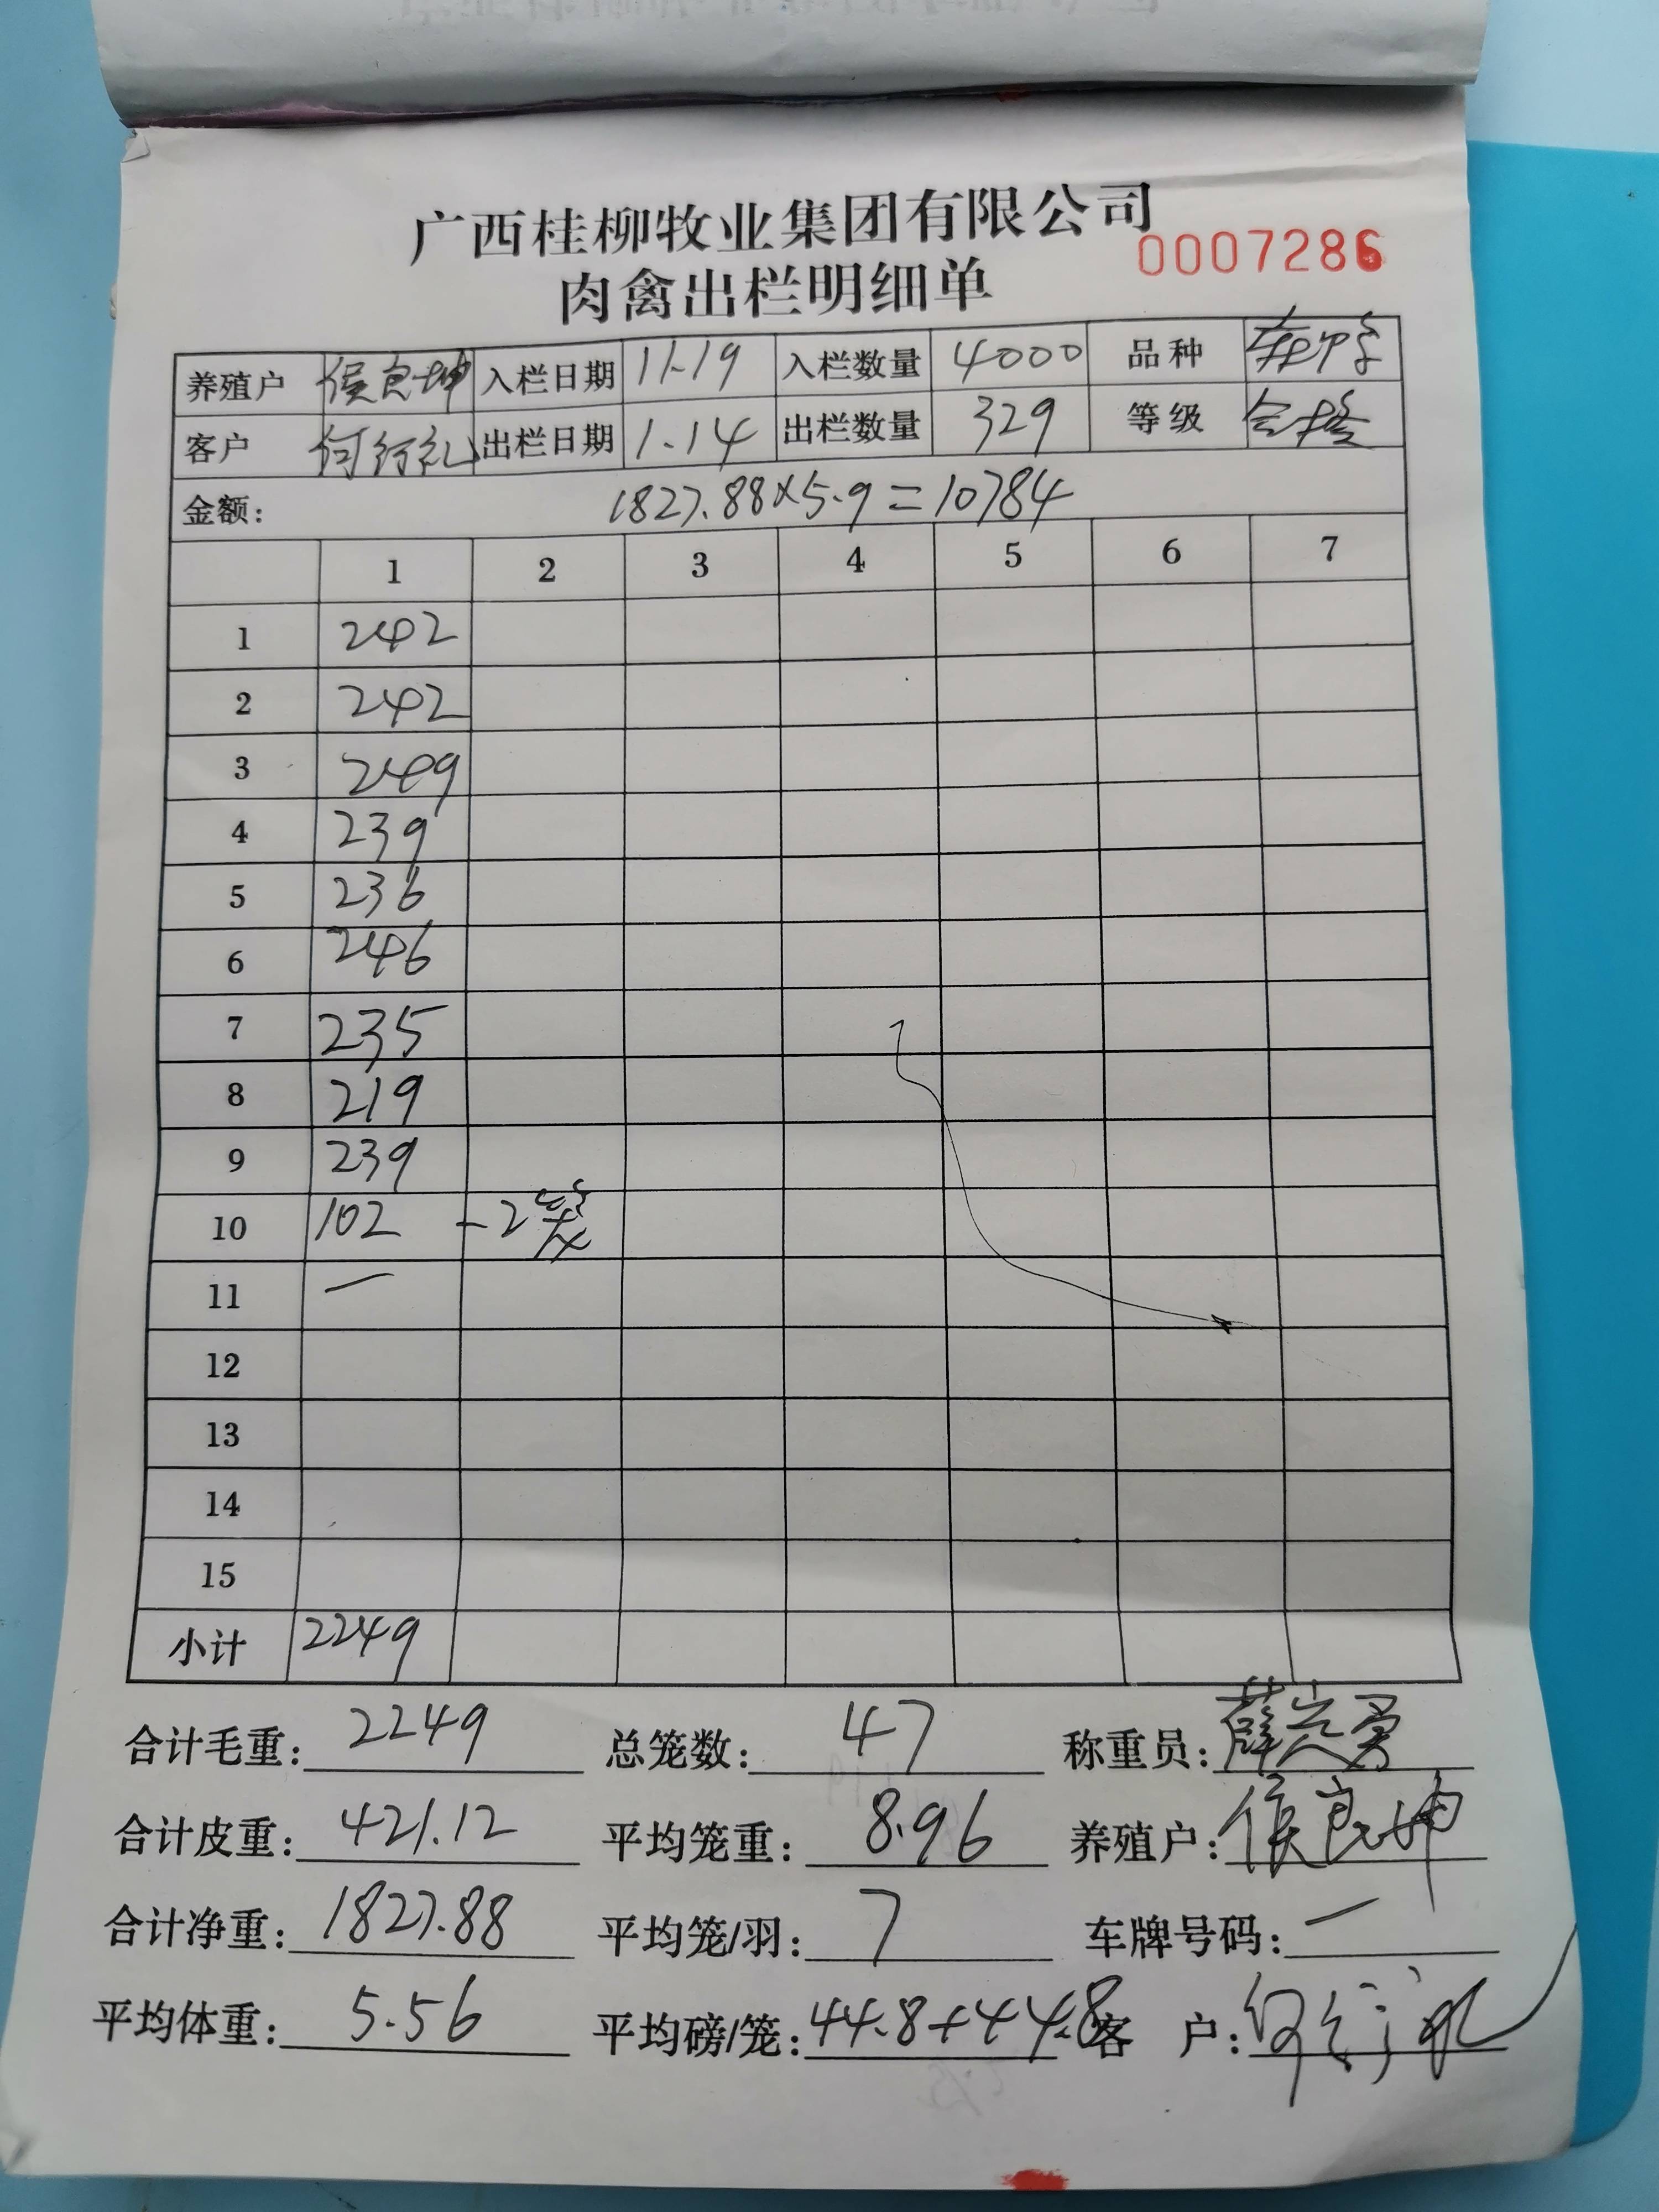 广西桂柳牧业集团有限公司
肉禽出栏明细单 0007286
养殖户 侯良坤 入栏日期 11.19 入栏数量 4000 品种
客户 何行礼 出栏日期 1.14 出栏数量 329 等级 合格
金额: 1827.88×5.9=10784
1 2 3 4 5 6 7
1 242
2 242
3 249
4 239
5 236
6 246
7 235
8 219
9 239
10 102 -2笼
11 一
12
13
14
15
小计 2249
合计毛重: 2249 总笼数: 47 称重员:
合计皮重: 421.12 平均笼重: 8.96 养殖户: 侯良坤
合计净重: 1827.88 平均笼/羽: 7 车牌号码: 一
平均体重: 5.56 平均磅/笼: 44.8+44.8 客 户: 何行礼